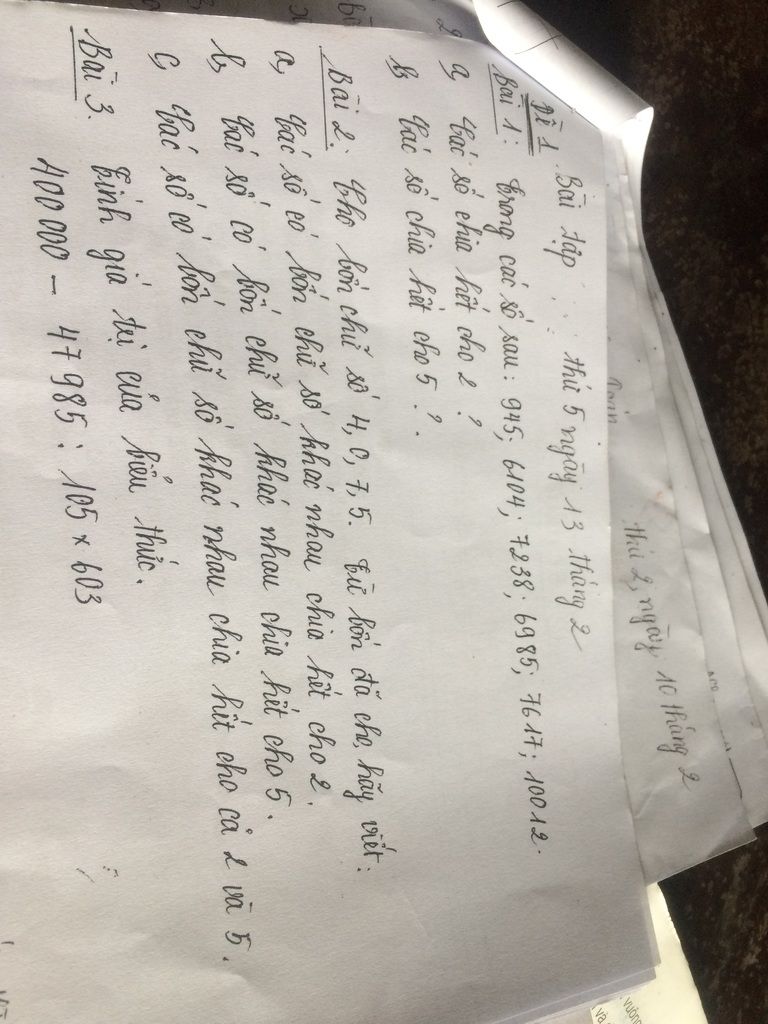 Đề 1. Bài tập thứ 5 ngày 13 tháng 2
Bài 1: Trong các số sau: 945; 6104; 7238; 6985; 7617; 10012.
a, Các số chia hết cho 2?
b, Các số chia hết cho 5?.
Bài 2: Cho bốn chữ số 4, 0, 7, 5. Từ bốn đã cho, hãy viết:
a, Các số có bốn chữ số khác nhau chia hết cho 2.
b, Các số có bốn chữ số khác nhau chia hết cho 5.
c, Các số có bốn chữ số khác nhau chia hết cho cả 2 và 5.
Bài 3. Tính giá trị của biểu thức.
400 000 - 47985 : 105 x 603
thứ 2, ngày 10 tháng 2